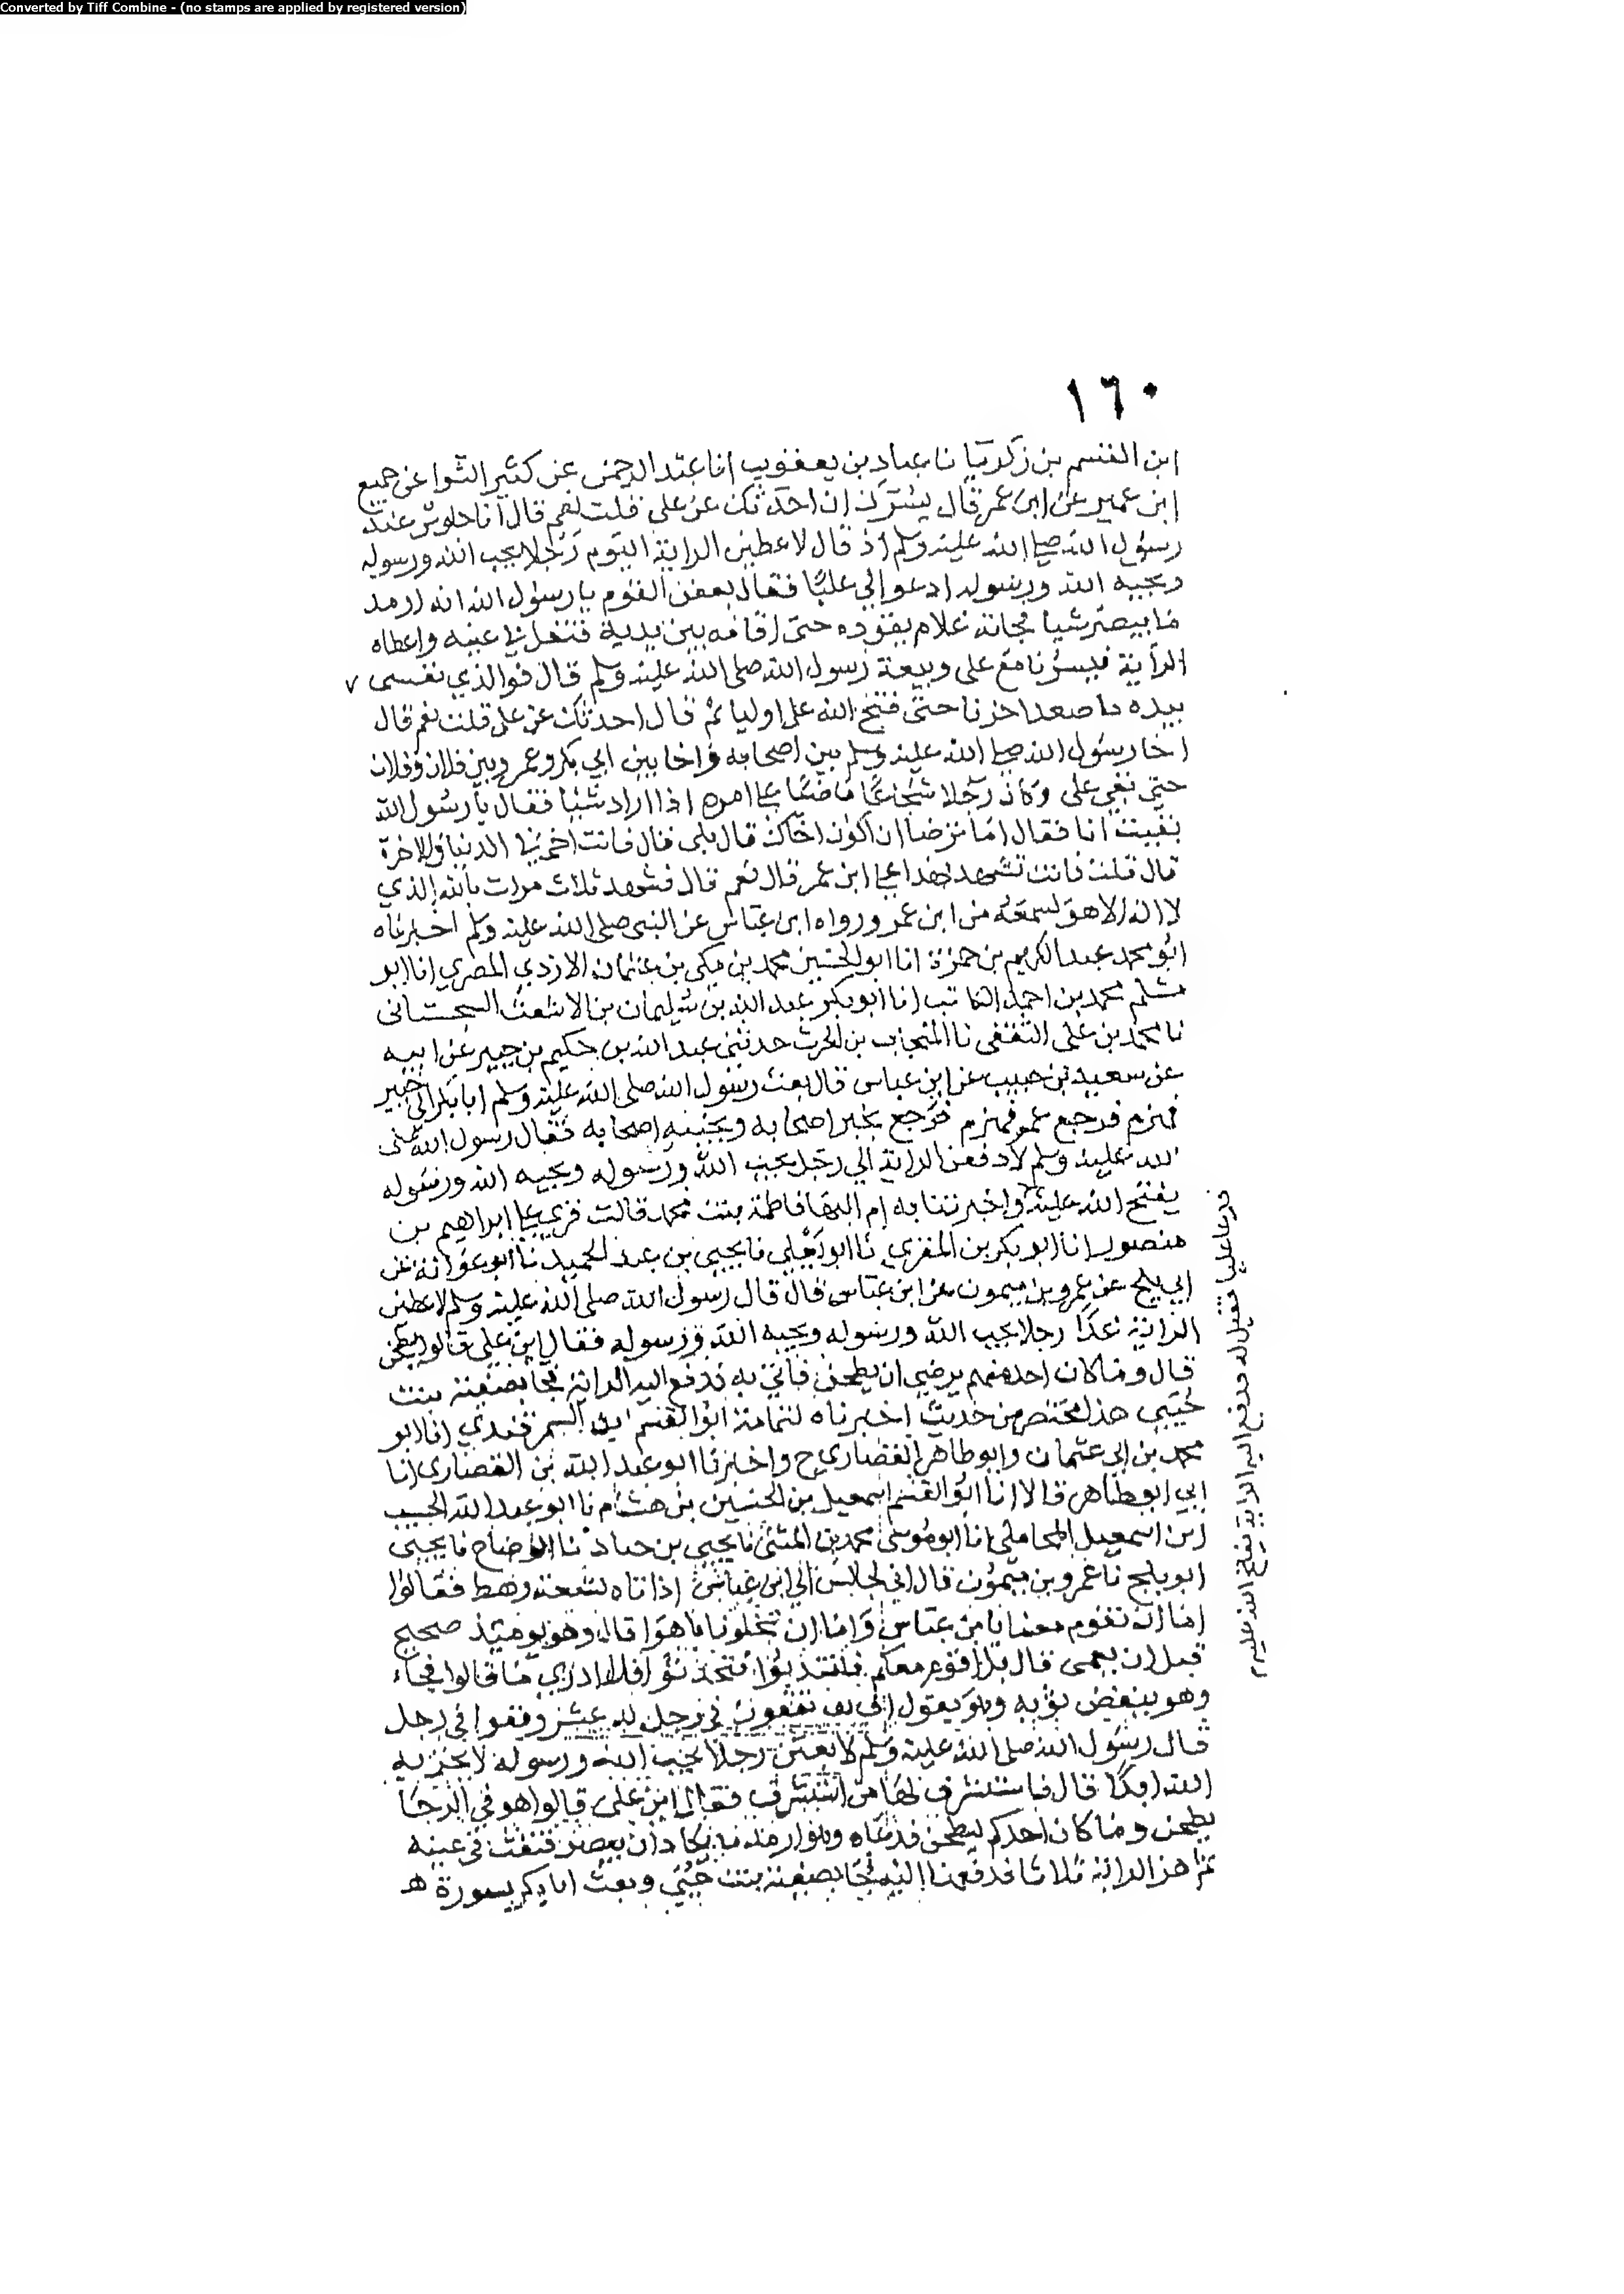 Converted by Tiff Combine - (no stamps are applied by registered version)
١٦٠
ابن القسم بن زكريا نا عباد بن يعقوب انا عبد الرحمن عن كثير النوا عن جميع
ابن عمير عن ابن عمر قال يسرك ان احدثك عن علي قلت نعم قال انا جلوس عند
رسول الله صلى الله عليه وسلم اذ قال لاعطين الراية اليوم رجلا يحب الله ورسوله
ويحبه الله ورسوله ادعو الي عليا فقال بعض القوم يا رسول الله انه ارمد
ما يبصر شيا فجا به غلام يقوده حتى اقامه بين يديه فتفل في عينيه واعطاه
الراية فسرنا مع علي وبيعة رسول الله صلى الله عليه وسلم قال فوالذي نفسي
بيده ما صعد اخرنا حتى فتح الله على اوليا ثم قال احدثك عن علي قلت نعم قال
اخا رسول الله صلى الله عليه وسلم بين اصحابه فواخا بين ابي بكر وعمر وبين فلان وفلان
حتى بقي علي وكان رجلا شجاعا ماضيا على امره اذا اراد شيا فقال يا رسول الله
بقيت انا فقال اما ترضا ان اكون اخاك قال بلى قال فانت اخي في الدنيا والاخرة
قال قلت فانت تشهد بهذا على ابن عمر قال نعم قال فشهد ثلاث مرات بالله الذي
لا اله الا هو لسمعه من ابن عمر ورواه ابن عباس عن النبي صلى الله عليه وسلم اخبرناه
ابو محمد عبد الكريم بن حمزة انا ابو الحسين محمد بن مكي بن عثمان الازدي المصري انا ابو
مسلم محمد بن احمد الكاتب انا ابو بكر عبد الله بن سليمان بن الاشعث السجستاني
نا محمد بن علي الثقفي نا المنجاب بن الحرث حدثني عبد الله بن حكيم بن جبير عن ابيه
عن سعيد بن جبير عن ابن عباس قال بعث رسول الله صلى الله عليه وسلم ابا بكر الى خيبر
فهزم فرجع عمر فهزم فرجع يجبن اصحابه ويجبنه اصحابه فقال رسول الله صلى
الله عليه وسلم لادفعن الراية الى رجل يحب الله ورسوله ويحبه الله ورسوله
يفتح الله عليه واخبرتنا به ام البها فاطمة بنت محمد قالت قري على ابراهيم بن
منصور انا ابو بكر بن المقري نا ابو يعلي نا يحيى بن عبد الحميد نا ابو عوانة عن
ابي بلج عن عمرو بن ميمون عن ابن عباس قال قال رسول الله صلى الله عليه وسلم لاعطين
الراية غدا رجلا يحب الله ورسوله ويحبه الله ورسوله فقال اين علي قالوا يطحن
قال وما كان احد منهم يرضى ان يطحن فاتي به فدفع اليه الراية فجا بصفية بنت
حيي هذا مختصر من حديث اخبرناه بتمامه ابو القسم ابن السمرقندي انا ابو
محمد بن ابي عثمان وابو طاهر القصاري ح واخبرنا ابو عبد الله بن القصاري انا
ابي ابو طاهر قالا انا ابو القسم اسمعيل بن الحسين بن هشام نا ابو عبد الله الحسين
ابن اسمعيل المحاملي نا ابو موسى محمد بن المثنى نا يحيى بن حماد نا الوضاح نا يحيى
ابو بلج نا عمرو بن ميمون قال اني لجالس الى ابن عباس اذ اتاه تسعة رهط فقالوا
اما ان تقوم معنا يا بن عباس واما ان تخلونا يا هوا قال وهو يوميذ صحيح
قبل ان يعمى قال بل اقوم معكم فانتدبوا فتحدثوا فلا ادري ما قالوا فجاء
وهو ينفض ثوبه وهو يقول اف تف وقعوا في رجل له عشر وقعوا في رجل
قال رسول الله صلى الله عليه وسلم لابعثن رجلا يحب الله ورسوله لا يخزيه
الله ابدا قال فاستشرف لها من استشرف فقال اين علي قالوا هو في الرحا
يطحن وما كان احدكم ليطحن فدعاه وهو ارمد ما يكاد ان يبصر فنفث في عينيه
ثم هز الراية ثلاثا فدفعها اليه فجا بصفية بنت حيي وبعث ابا بكر بسورة
فدعا عليا فقيل له فدفع اليه الراية يفتح الله عليه